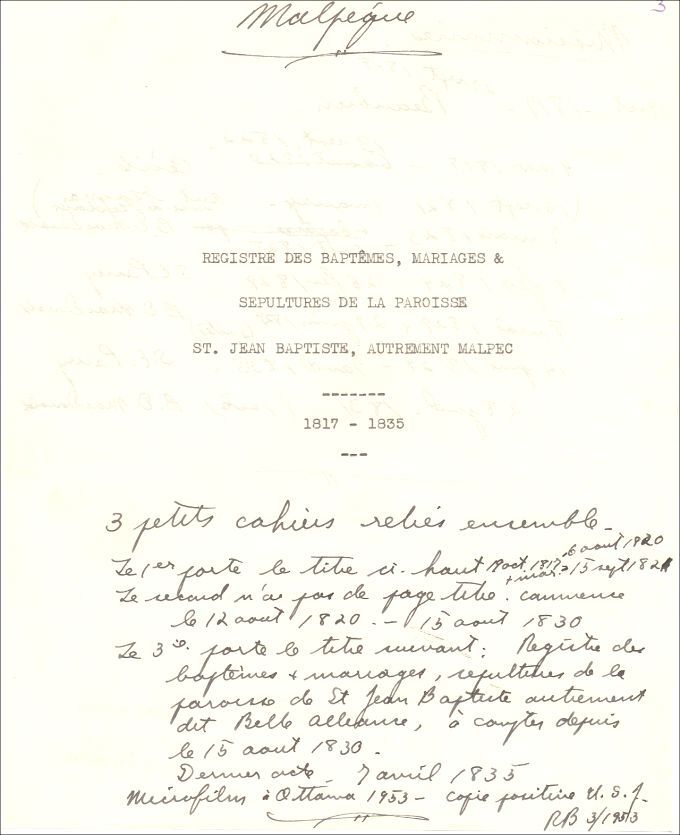 3
Malpèque
REGISTRE DES BAPTÊMES, MARIAGES &
SEPULTURES DE LA PAROISSE
ST. JEAN BAPTISTE, AUTREMENT MALPEC
-------
1817 - 1835
---
3 petits cahiers reliés ensemble -
Le 1er porte le titre ci-haut 19 oct. 1817 - 6 aout 1820
+ mar. 15 sept 1821
Le second n'a pas de page titre. commence
le 12 aout 1820. - 15 aout 1830
Le 3ie porte le titre suivant: Registre des
baptèmes + mariages, sepultures de la
paroisse de St Jean Baptiste autrement
dit Belle Alleance, à compter depuis
le 15 aout 1830.
Dernier acte - 7 avril 1835
Microfilm à Ottawa 1953 - copie positive U.S.J.
RB 3/1953